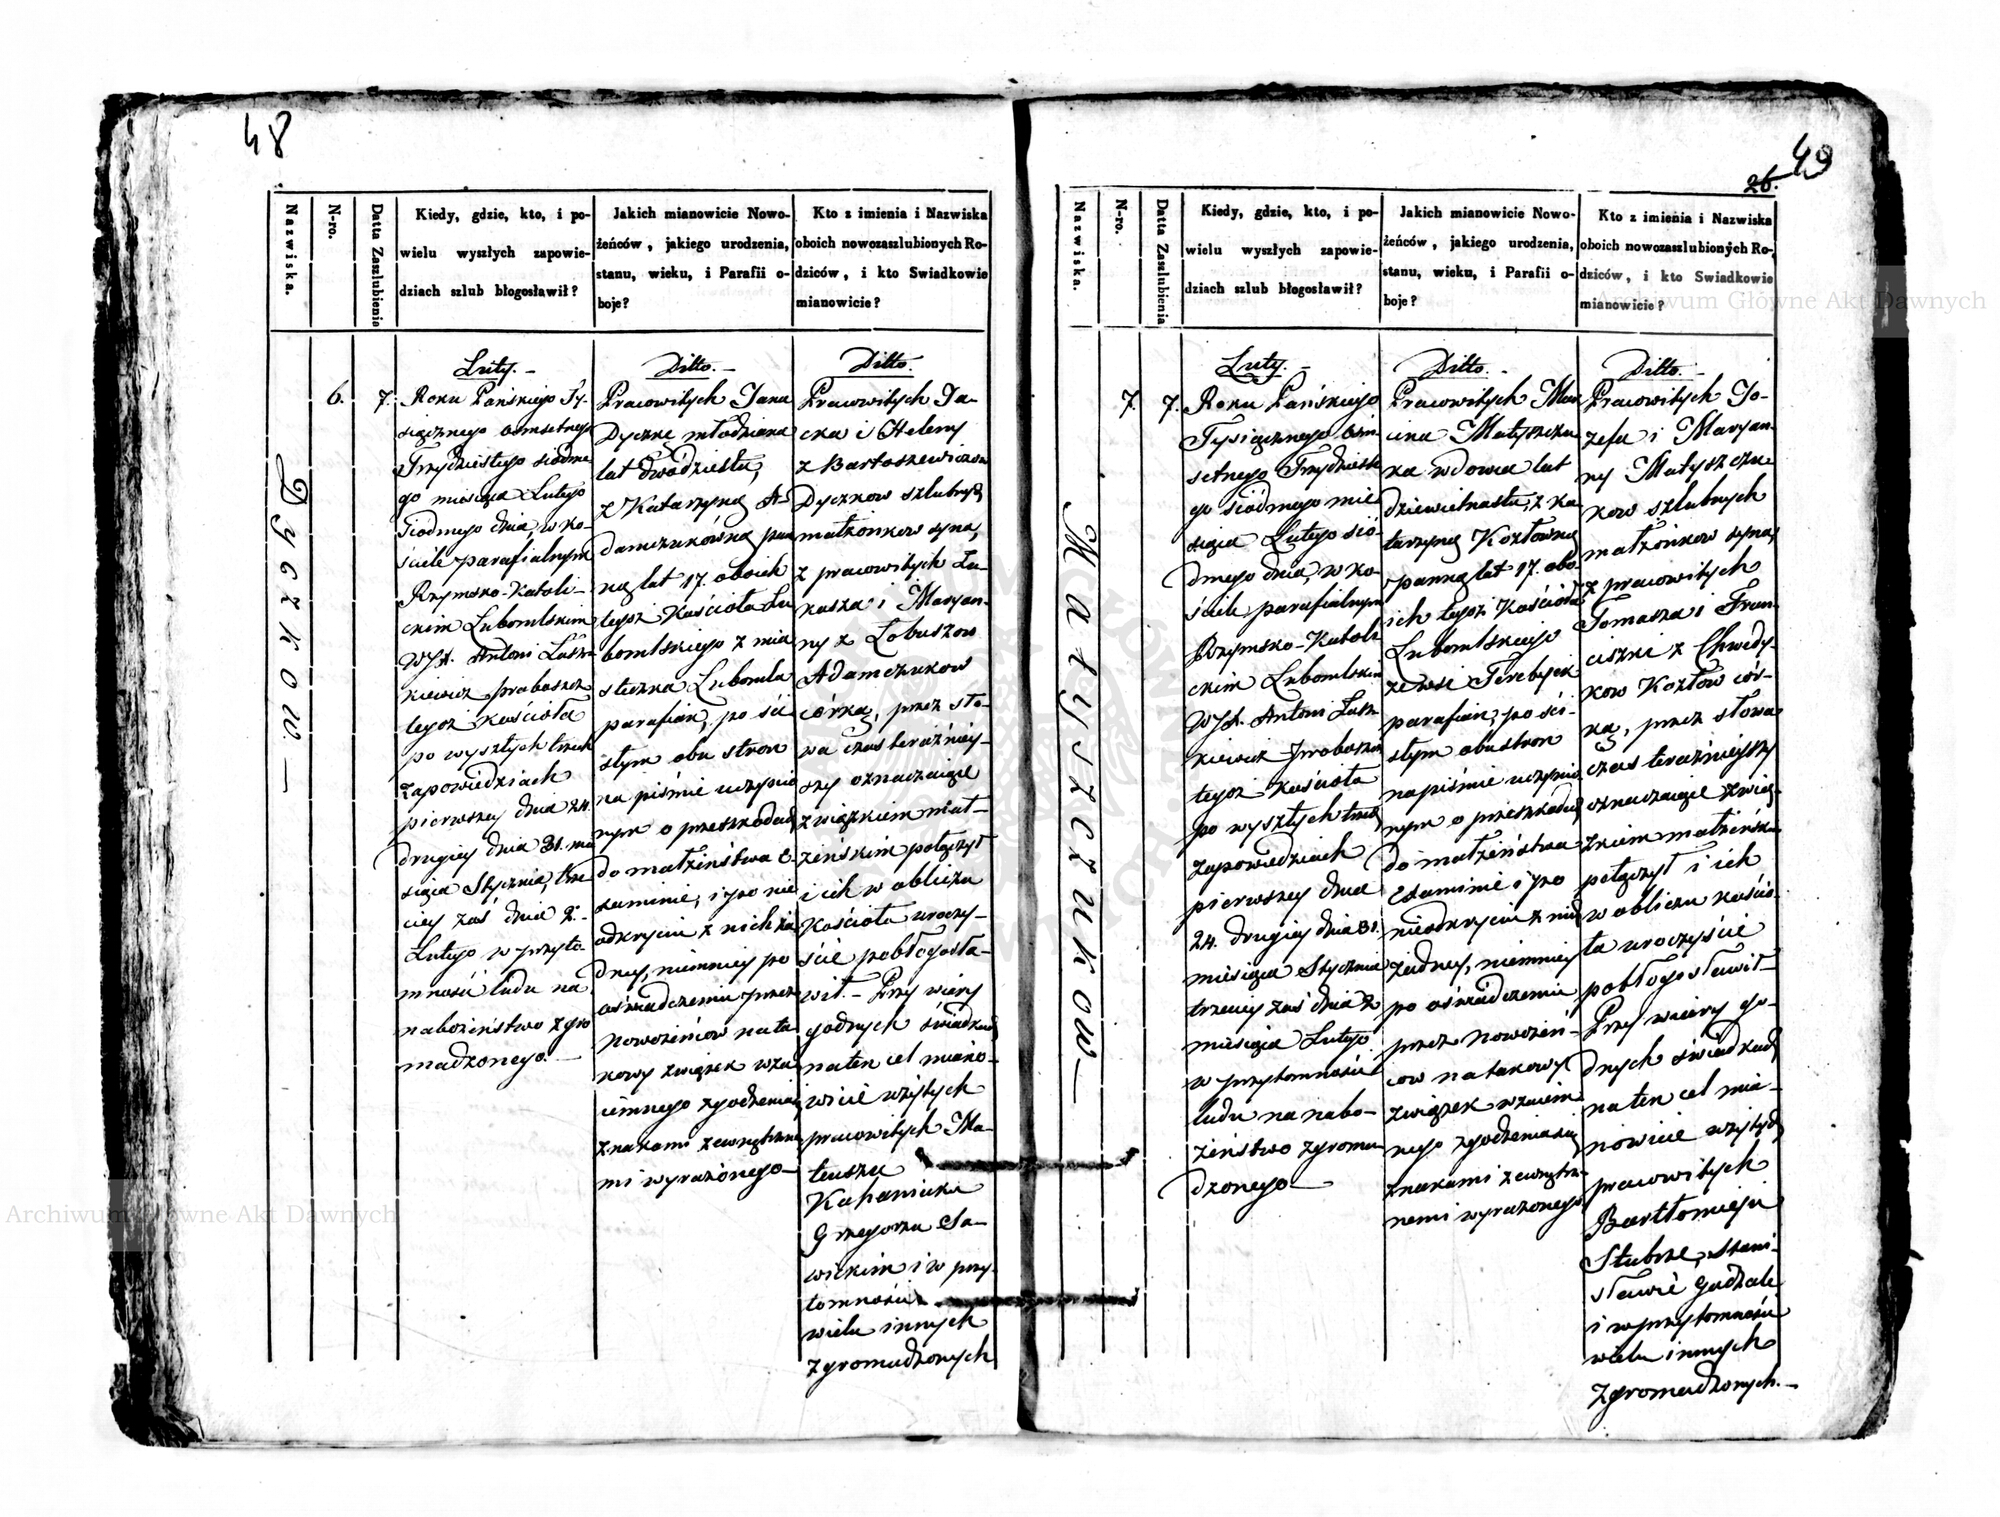 48
Nazwiska.
N-ro.
Datta Zaszlubienia
Kiedy, gdzie, kto, i po-
wielu wyszłych zapowie-
dziach szlub błogosławił?
Jakich mianowicie Nowo-
żeńców, jakiego urodzenia,
stanu, wieku, i Parafii o-
boje?
Kto z imienia i Nazwiska
oboich nowozaszlubionych Ro-
dziców, i kto Swiadkowie
mianowicie?
Dyczkow.—
6.
7.
Luty.—
Roku Pańskiego Ty-
siącznego osmsetnego
Trzydziestego siodme
go miesiąca Lutego
Siodmego dnia, w ko-
ściele parafialnym
Rzymsko-Katoli-
ckim Lubomlskim
WJX. Antoni Lasz-
kiewicz proboszcz
tegoż kościoła
po wyszłych trzech
zapowiedziach
pierwszey dnia 24.
drugiey dnia 31. mie
siąca Stycznia, trze
ciey zaś dnia 2.
Lutego w przyto
mności ludu na
nabożeństwo zgro
madzonego.—
Ditto.—
Pracowitych Jana
Dyczkę młodziana
lat dwódziestu,
z Katarzyną A-
damczukówną pan
ną lat 17. oboich
tegoż Kościoła Lu
bomlskiego z mia
steczka Lubomla
parafian, po ści
słym obu stron
na piśmie uczynio
nym o przeszkodach
do małżeństwa E-
xaminie, i po nie
odkryciu z nich ża
dney, niemniey po
oświadczeniu przez
nowożeńcow na ta
kowy związek wza
iemnego zgodzenia
znakami zewnętrzne
mi wyrażonego—
Ditto.
Pracowitych Ja-
cka i Heleny
z Bartoszewiczow
Dyczkow szlubnych
małżonkow syna,
z pracowitych Łu-
kasza i Maryan-
ny z Lobuszow
Adamczukow
córką, przez sło-
wa czas teraźniey-
szy oznaczaiące
związkiem mał-
żeńskim połączył
i ich w obliczu
Kościoła uroczy-
ście pobłogosła-
wił.— Przy wiary
godnych świadkach
na ten cel miano-
wicie wziętych
pracowitych Ma-
teuszu
Kahaniuku
Grzegorzu Sa-
wickim i w przy-
tomności
wielu innych
zgromadzonych
49
26.
Nazwiska.
N-ro.
Datta Zaszlubienia
Kiedy, gdzie, kto, i po-
wielu wyszłych zapowie-
dziach szlub błogosławił?
Jakich mianowicie Nowo-
żeńców, jakiego urodzenia,
stanu, wieku, i Parafii o-
boje?
Kto z imienia i Nazwiska
oboich nowozaszlubionych Ro-
dziców, i kto Swiadkowie
mianowicie?
Matyszczukow—
7.
7.
Luty.—
Roku Pańskiego
Tysiącznego osm
setnego Trzydzieste
go siódmego mie
siąca Lutego sió-
dmego dnia, w ko-
ściele parafialnym
Rzymsko-Katoli
ckim Lubomlskim
WJX. Antoni Lasz-
kiewicz Proboszcz
tegoż kościoła
po wyszłych trzech
zapowiedziach
pierwszey dnia
24. drugiey dnia 31.
miesiąca Stycznia
trzeciey zaś dnia 2
miesiąca Lutego
w przytomności
ludu na nabo-
żeństwo zgroma
dzonego—
Ditto.—
Pracowitych Mar
cina Matyszczu
ka wdowca lat
dziewietnastu, z Ka
tarzyną Kozłowną
panną lat 17. obo-
ich tegoż Kościoła
Lubomlskiego
ze wsi Terebejek
parafian, po ści-
słym obustron
na piśmie uczynio
nym o przeszkodach
do małżeństwa
Examinie i po
nieodkryciu z nich
żadney, niemniey
po oświadczeniu
przez nowożeń-
cow na takowy
związek wzaiem
nego zgodzenia się
znakami zewnętrz-
nemi wyrażonego
Ditto.—
Pracowitych Jo-
zefa i Maryan-
ny Matyszczu-
kow szlubnych
małżonkow syna,
z pracowitych
Tomasza i Fran-
ciszki z Chwedy-
kow Kozłow cór-
ką, przez słowa
czas teraźnieyszy
oznaczaiące zwiąs-
kiem małżeńskim
połączył i ich
w obliczu kościo-
ła uroczyście
pobłogosławił—
Przy wiary go-
dnych świadkach
na ten cel mia-
nowicie wziętych
pracowitych
Bartłomieju
Słubrze, Stani-
sławie Gadzale
i w przytomności
wielu innych
zgromadzonych.—
Archiwum Główne Akt Dawnych
Archiwum Główne Akt Dawnych